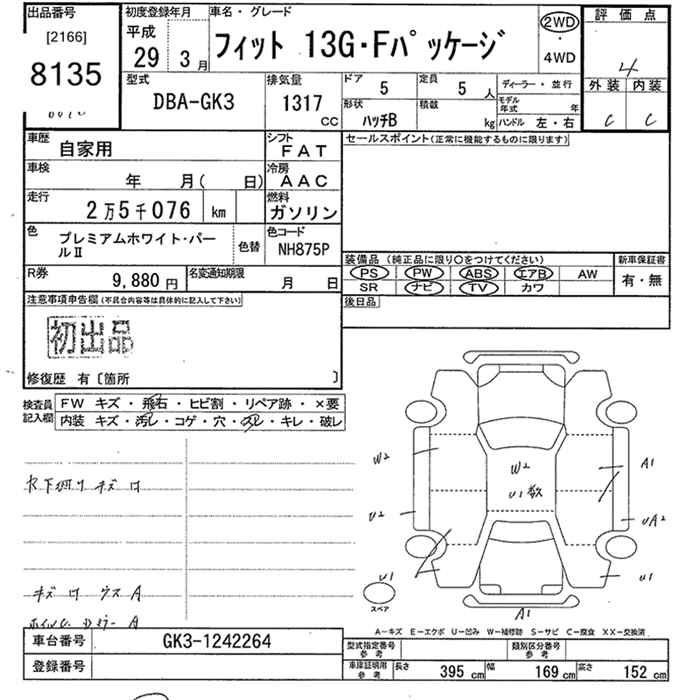 出品番号
[2166]
8135
初度登録年月
平成
29 3月
車名・グレード
フィット 13G・Fパッケージ
2WD
・
4WD
評価点
4
外装 内装
C C
型式
DBA-GK3
排気量
1317
CC
ドア
5
定員
5 人
形状
ハッチB
積載
kg
ディーラー・並行
モデル年式 年
ハンドル 左・右
車歴
自家用
シフト
FAT
車検
年 月( 日)
冷房
AAC
走行
2万5千076 km
燃料
ガソリン
色
プレミアムホワイト・パールⅡ
色替
色コード
NH875P
R券
9,880円
名変通知期限
月 日
セールスポイント(正常に機能するものに限ります)
装備品(純正品に限り○をつけてください)
PS PW ABS エアB AW
SR ナビ TV カワ
新車保証書
有・無
後日品
注意事項申告欄(不具合内容等は具体的に記入して下さい)
初出品
修復歴 有〔箇所 〕
検査員記入欄
FW キズ・飛石・ヒビ割・リペア跡・×要
内装 キズ・汚レ・コゲ・穴・スレ・キレ・破レ
W2
W2
A1
U1数
U2
UA2
U1
U1
A1
スペア
A-キズ E-エクボ U-凹み W-補修跡 S-サビ C-腐食 XX-交換済
車台番号
GK3-1242264
登録番号
型式指定番号参考
類別区分番号参考
車庫証明用参考
長さ 395 cm 幅 169 cm 高さ 152 cm